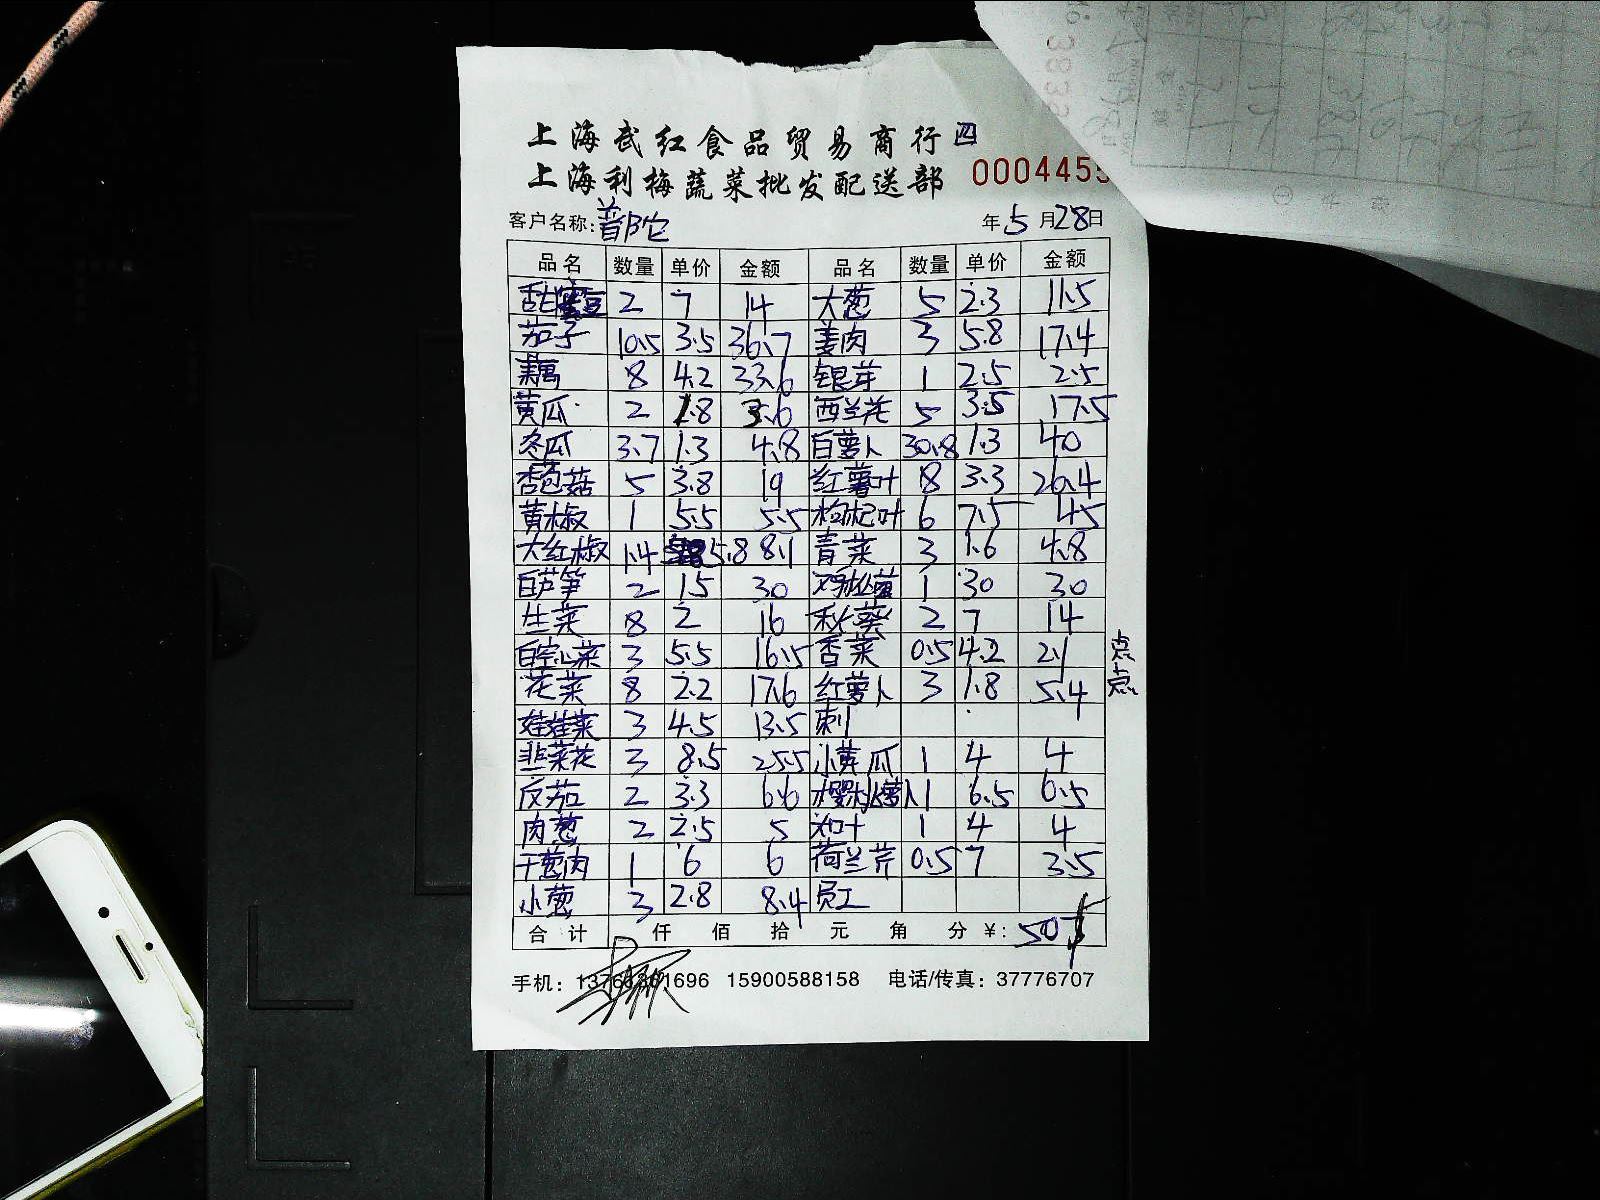 上海武红食品贸易商行 四
上海利梅蔬菜批发配送部 000445
客户名称: 普陀 年 5 月 28 日
品名 数量 单价 金额 品名 数量 单价 金额
甜蜜豆 2 7 14 大葱 5 2.3 11.5
茄子 10.5 3.5 36.7 姜肉 3 5.8 17.4
藕 8 4.2 33.6 银芽 1 2.5 2.5
黄瓜 2 1.8 3.6 西兰花 5 3.5 17.5
冬瓜 3.7 1.3 4.8 白萝卜 30.8 1.3 40
杏苞菇 5 3.8 19 红薯叶 8 3.3 26.4
黄椒 1 5.5 5.5 枸杞叶 6 7.5 45
大红椒 1.4 5.8 8.1 青菜 3 1.6 4.8
白芦笋 2 15 30 1 30 30
生菜 8 2 16 秋葵 2 7 14
白空心菜 3 5.5 16.5 香菜 0.5 4.2 2.1
花菜 8 2.2 17.6 红萝卜 3 1.8 5.4
娃娃菜 3 4.5 13.5 刺
韭菜花 3 8.5 25.5 小黄瓜 1 4 4
反茄 2 3.3 6.6 樱桃萝卜 1 6.5 6.5
肉葱 2 2.5 5 1 4 4
干葱肉 1 6 6 荷兰芹 0.5 7 3.5
小葱 3 2.8 8.4 员工
点点
合计 仟 佰 拾 元 角 分 ¥: 507
手机: 1696 15900588158 电话/传真: 37776707